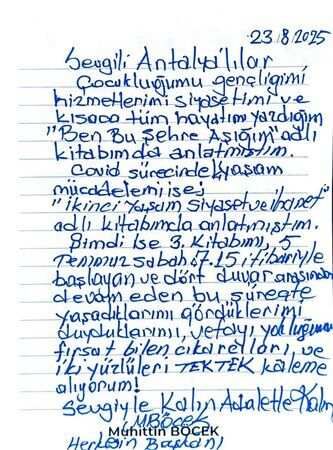 23/8/2025
Sevgili Antalya'lılar
Çocukluğumu gençliğimi
hizmetlerimi siyasetimi ve
kısaca tüm hayatımı yazdığım
"Ben Bu Şehre Aşığım" adlı
kitabımda anlatmıştım.
Covid sürecindeki yaşam
mücadelemi ise;
"İkinci Yaşam siyaset ve ihanet"
adlı kitabımda anlatmıştım.
Şimdi ise 3. Kitabımı, 5
Temmuz sabah 07.15 itibariyle
başlayan ve dört duvar arasından
devam eden bu süreçte
yaşadıklarımı gördüklerimi
duyduklarımı, vefayı yokluğumu
fırsat bilen çıkarcıları, ve
iki yüzlüleri TEK TEK kaleme
alıyorum!
Sevgiyle Kalın Adaletle Kalın
MBÖCEK
Muhittin BÖCEK
Herkesin Başkanı